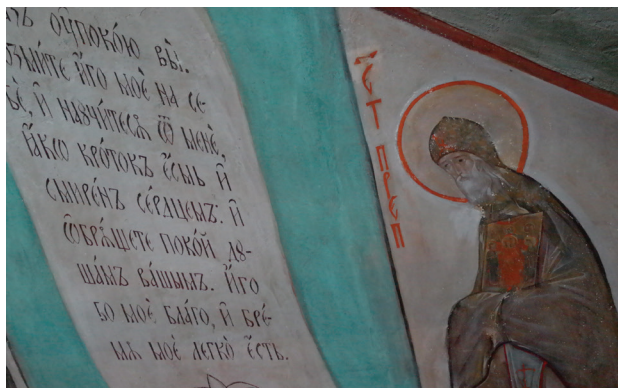 оу҆поко́ю вы̀.
и҆́го моѐ на се-
бѐ, и҆ наꙋчи́тесѧ ѿ менѐ,
ꙗ҆́кѡ кро́токъ є҆́смь и҆
смире́нъ се́рдцемъ. и҆
ѡ҆брѧ́щете поко́й дꙋ-
ша́мъ ва́шымъ. и҆́го
бо моѐ бла́го, и҆ бре́-
мѧ моѐ легко̀ є҆́сть.